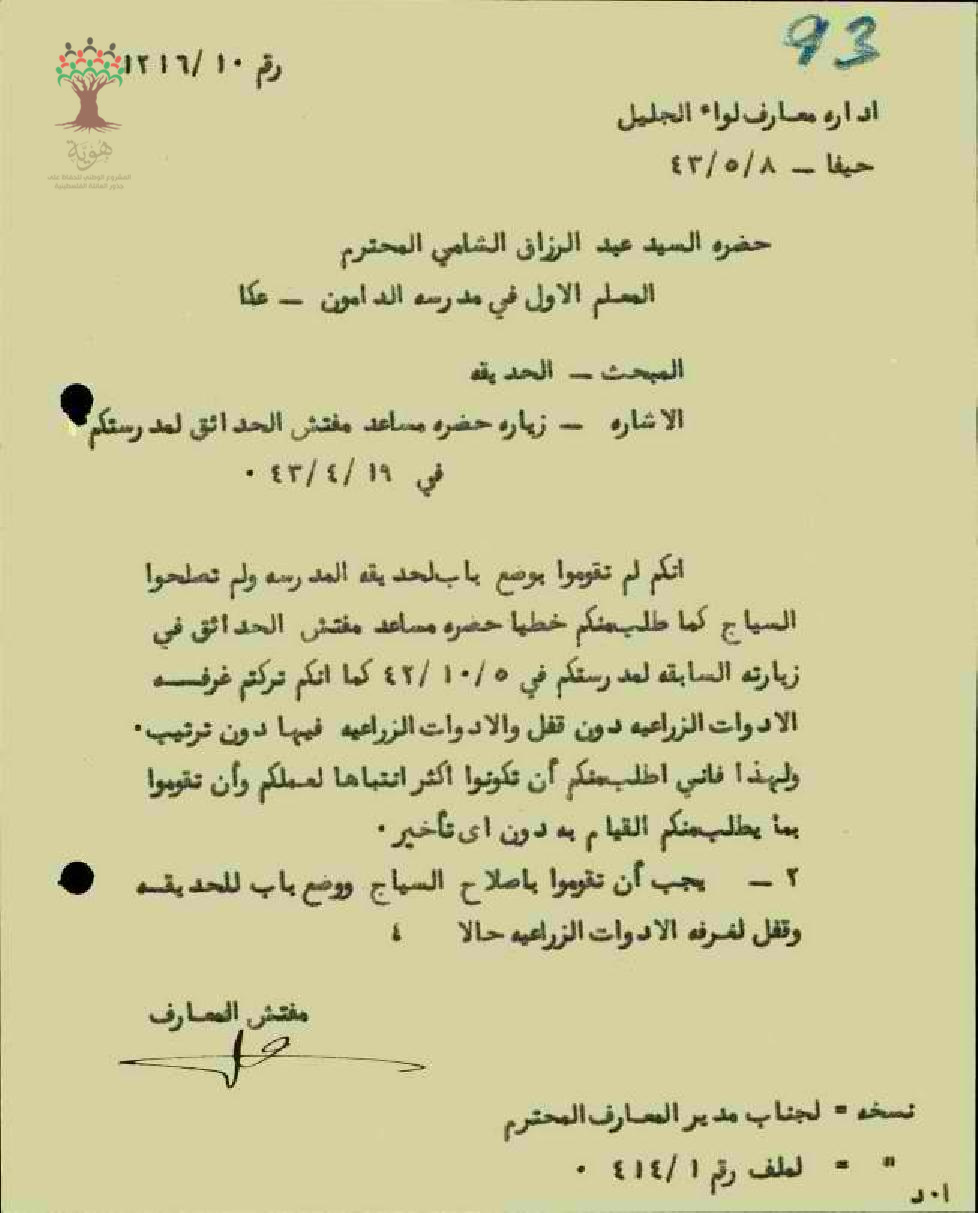 93
رقم ١٠/ ١٢١٦
هوية
المشروع الوطني للحفاظ على
جذور العائلة الفلسطينية
اداره معارف لواء الجليل
حيفا – ٤٣/٥/٨
حضره السيد عبد الرزاق الشامي المحترم
المعلم الاول في مدرسه الدامون – عكا
المبحث – الحديقه
الاشاره – زياره حضره مساعد مفتش الحدائق لمدرستكم
في ١٩/ ٤٣/٤ ٠
انكم لم تقوموا بوضع باب لحديقه المدرسه ولم تصلحوا
السياج كما طلب منكم خطيا حضره مساعد مفتش الحدائق في
زيارته السابقه لمدرستكم في ٤٢/١٠/٥ كما انكم تركتم غرفـــه
الادوات الزراعيه دون قفل والادوات الزراعيه فيها دون ترتيب٠
ولهذا فاني اطلب منكم أن تكونوا اكثر انتباها لعملكم وأن تقوموا
بما يطلب منكم القيام به دون اى تأخير٠
٢ – يجب أن تقوموا باصلاح السياج ووضع باب للحديقــه
وقفل لغرفه الادوات الزراعيه حالا ٤
مفتش المعارف
نسخه = لجناب مدير المعارف المحترم
" = لملف رقم ١/ ٤١٤ ٠
ا٠د